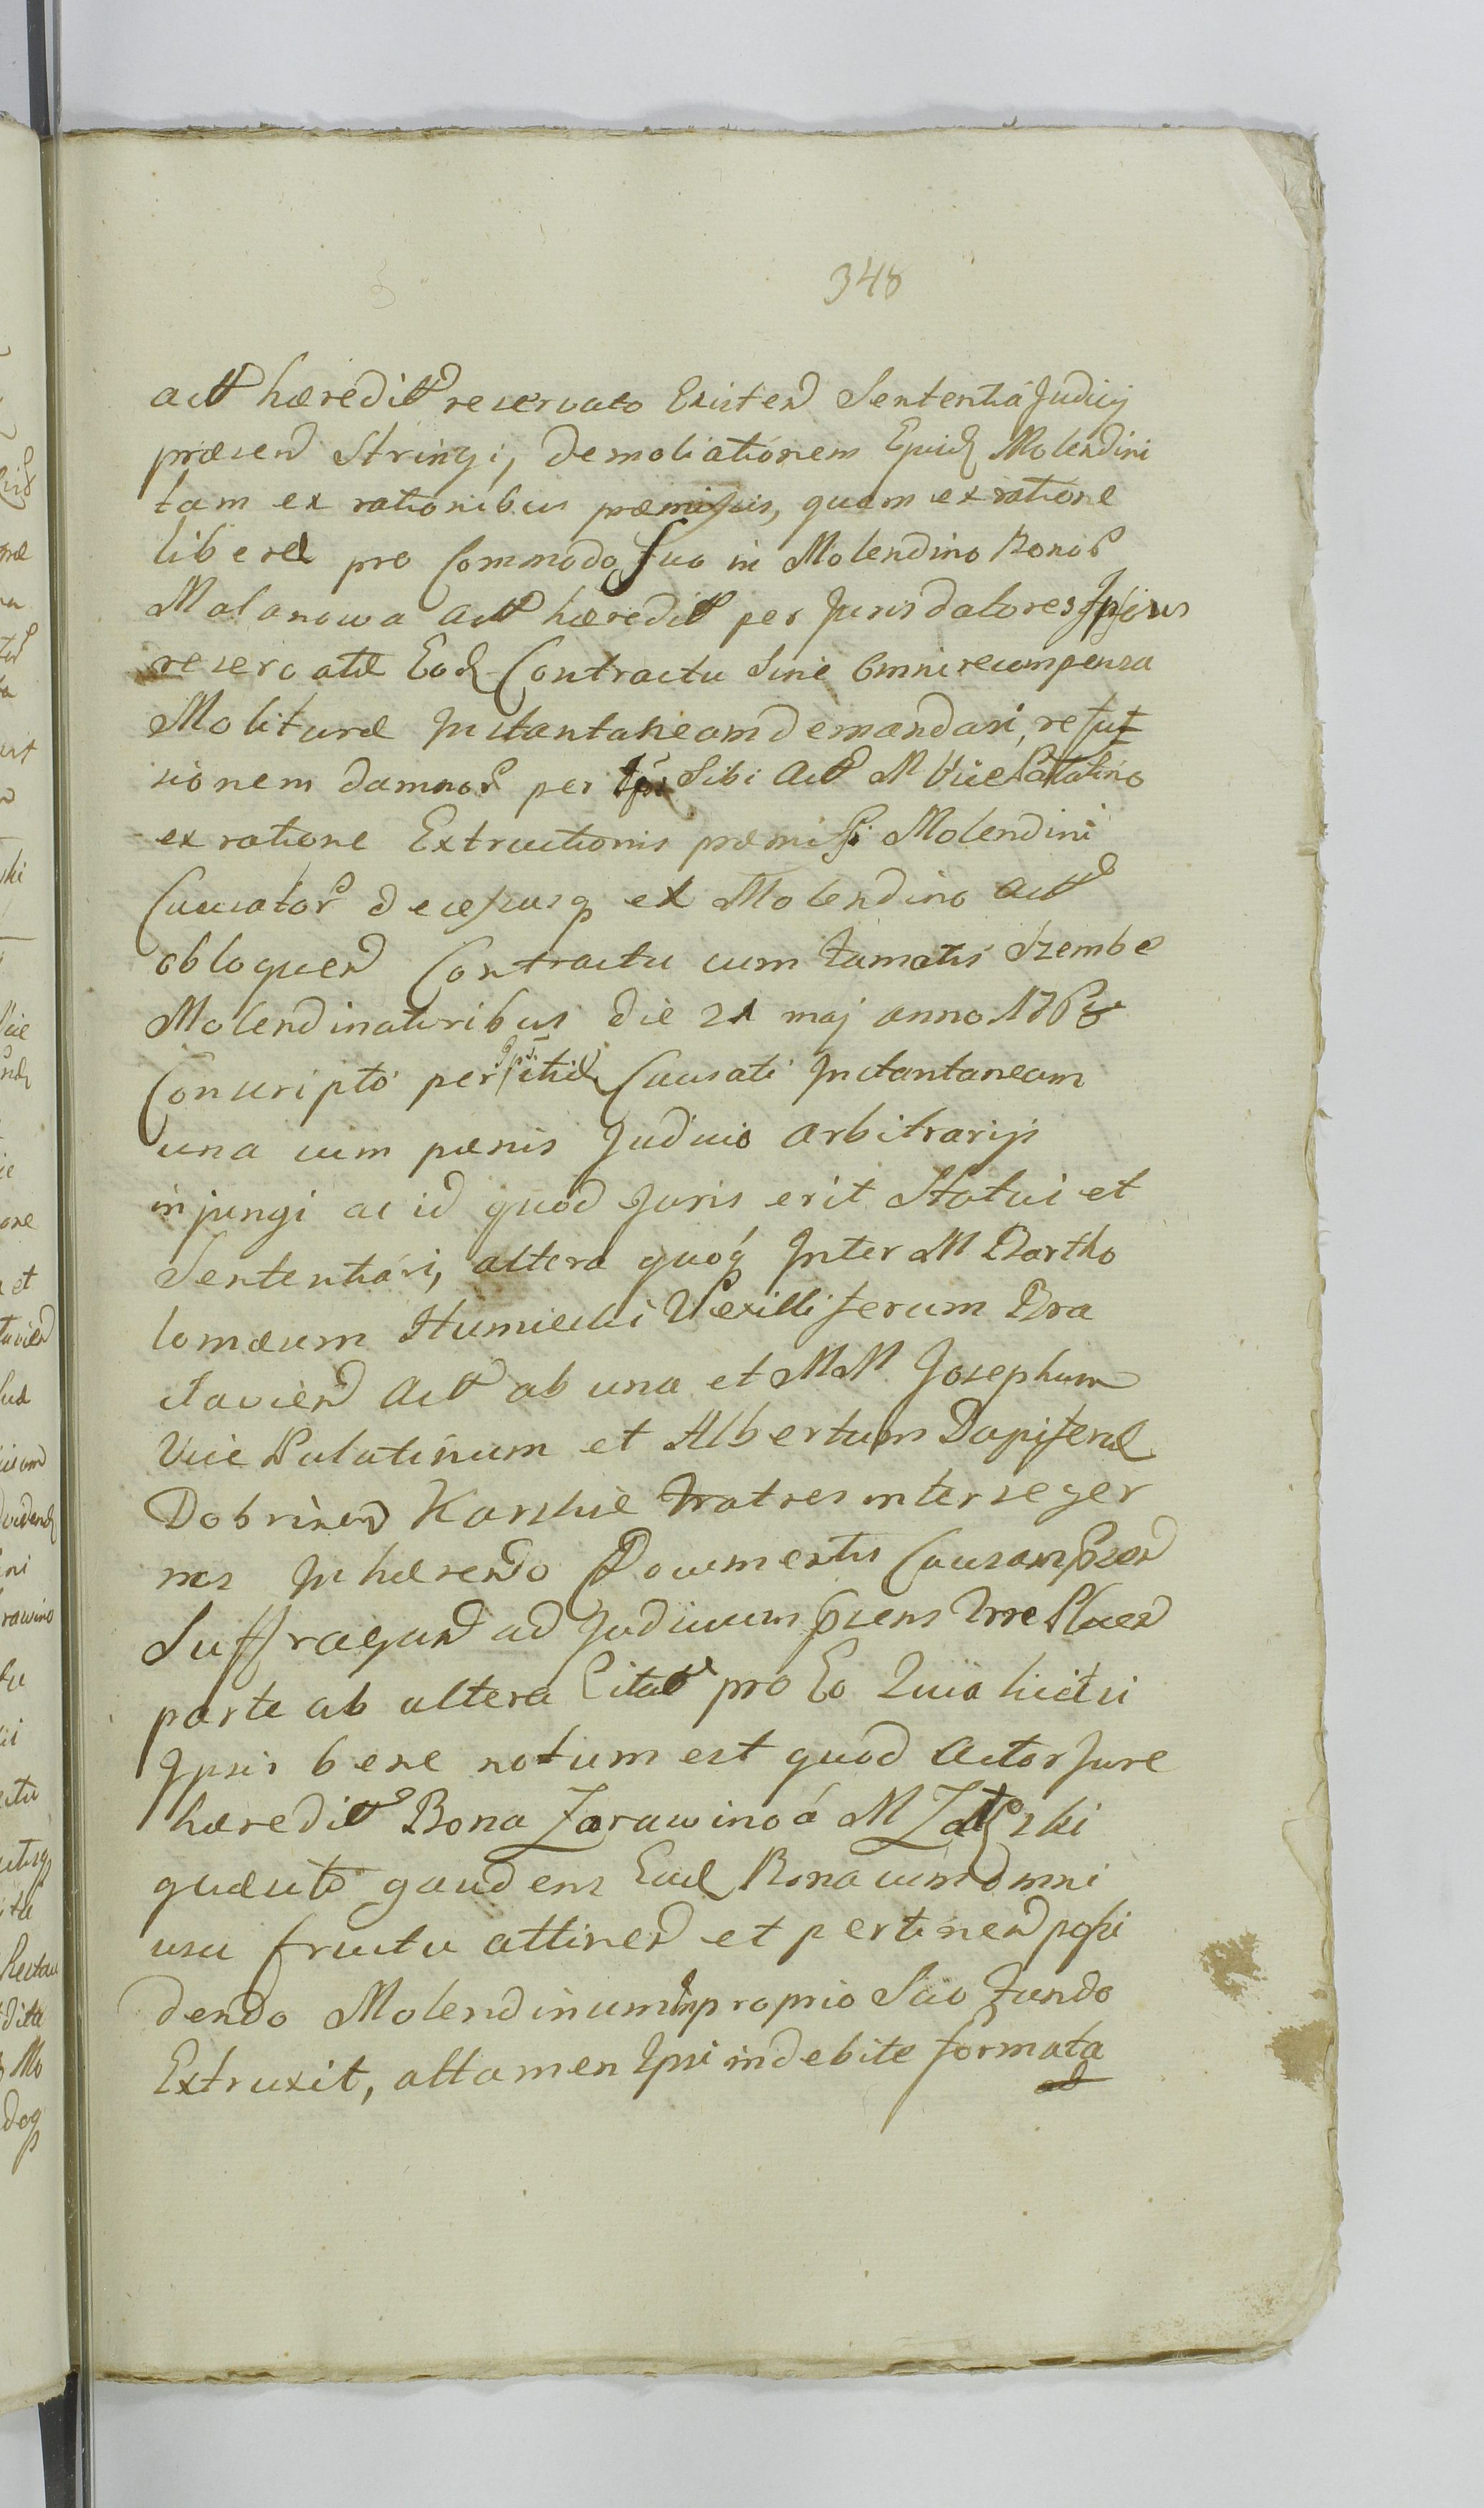 348
actt hæreditt reservato Existen Sententia Judicij
præsen Stringi, demoliationem Ejusd Molendini
tam ex rationibus præmissis, quam ex ratione
liberæ pro Commodo Suo in Molendino Bonor
Malanowa actt hæreditt per Jurisdatores Ipsius
reservatæ Eod Contractu Sine Omni recompensa
Molituræ Instantaneam demandari, refu
sionem damnor per Sibi Actt M Vice Palatino
ex ratione Extructionis præmissi Molendini
Causator decessusq ex Molendino actt
obloquen Contractu cum famatis Szembe
Molendinatoribus die 21 maj anno 176
Conscripto per Causati Instantaneam
una cum pænis Judicio arbitrarijs
injungi ac id quod Juris erit Statui et
Sententiari, altera quoq Inter M Bartho
lomæum Humiecki Vexilliferum Bra
clavien Actt ab una et MM Josephum
Vice Palatinum et Albertum Dapiferæ
Dobrinen Karskie fratres inter se ger
nos Inhærendo Documentis Causam Præsen
Suffragan ad Judicium Præsens Trre Plocen
parte ab altera Citatt pro Eo Quia licet
Ipsis bene notum est quod Actor Jure
hæreditt Bona Zarawino á M Za ski
quæsito gaudens Ead Bona cum omni
usu fructu attinen et pertinen possi
dendo Molendinum in proprio Suo fundo
Extruxit, attamen Ipsi indebite formata